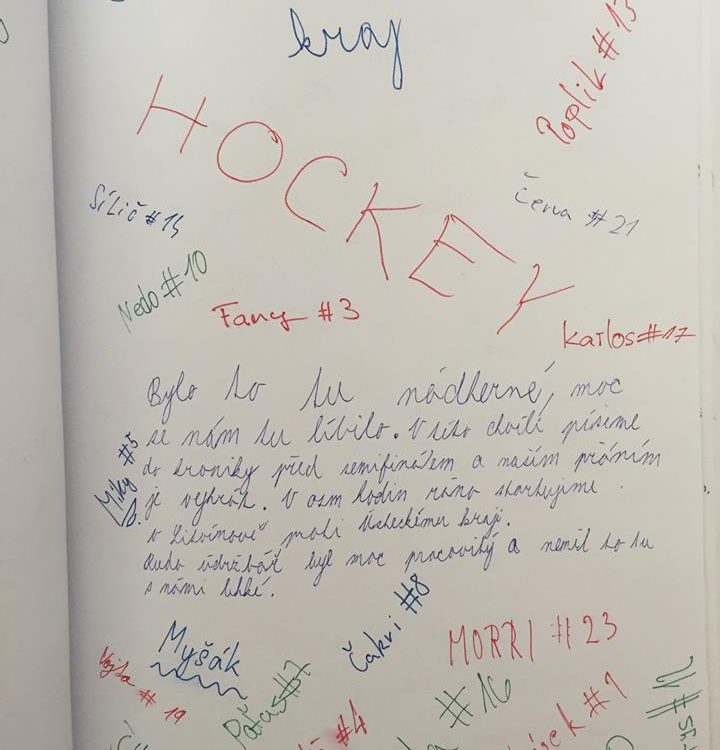 kraj
Poplik #13
HOCKEY
Sílič #14
Čena #21
Nedo #10
Fany #3
Karlos #17
Bylo to tu nádherné, moc
se nám tu líbilo. V této chvíli píšeme
do kroniky před semifinálem a naším přáním
je vyhrát. V osm hodin ráno startujeme
v Litvínově proti Ústeckému kraji.
údržbář byl moc pracovitý a neměl to tu
s námi lehké.
Miky #5
Čakri #8
MORRI #23
Myšák
Vojta #19
#7
#4
#16
#9